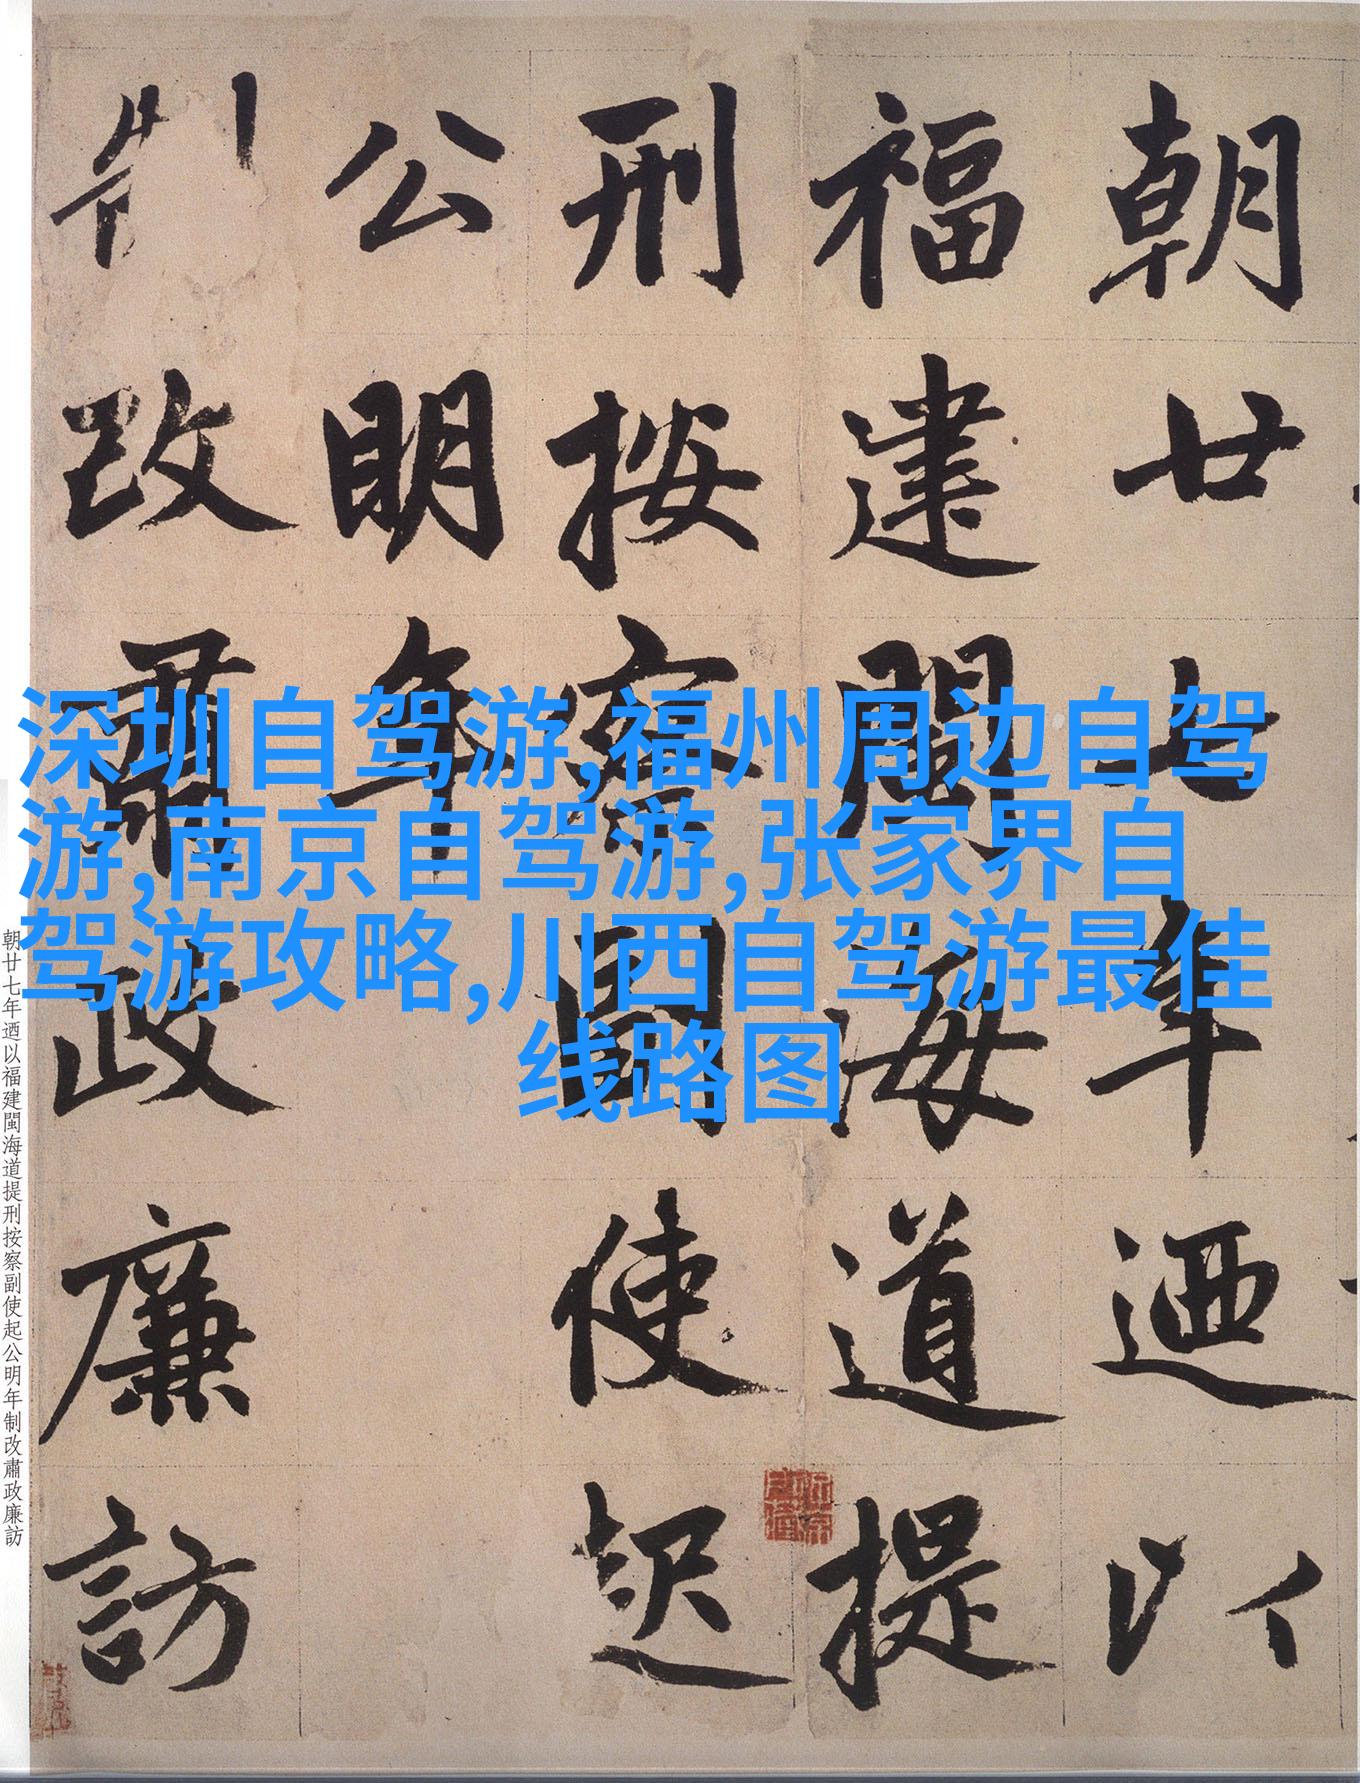 朝廿七年迺以
福建閩海道提
刑按察副使起
公明年
制改肅政廉訪
深圳自驾游,福州周边自驾
游,南京自驾游,张家界自
驾游攻略,川西自驾游最佳
线路图
朝廿七年迺以福建閩海道提刑按察副使起公明年制改肅政廉訪